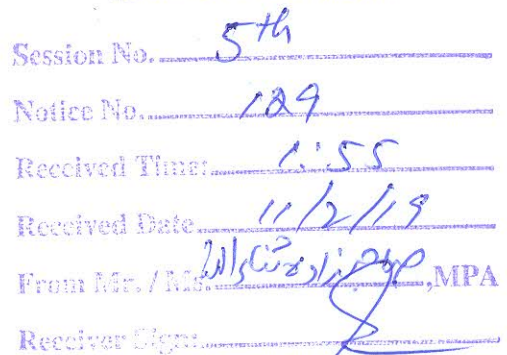 Session No. 5th
Notice No. 129
Received Time: 1:55
Received Date 11/2/19
From Mr. / Ms. صاحبزادہ ثناء اللہ ,MPA
Receiver Sign: